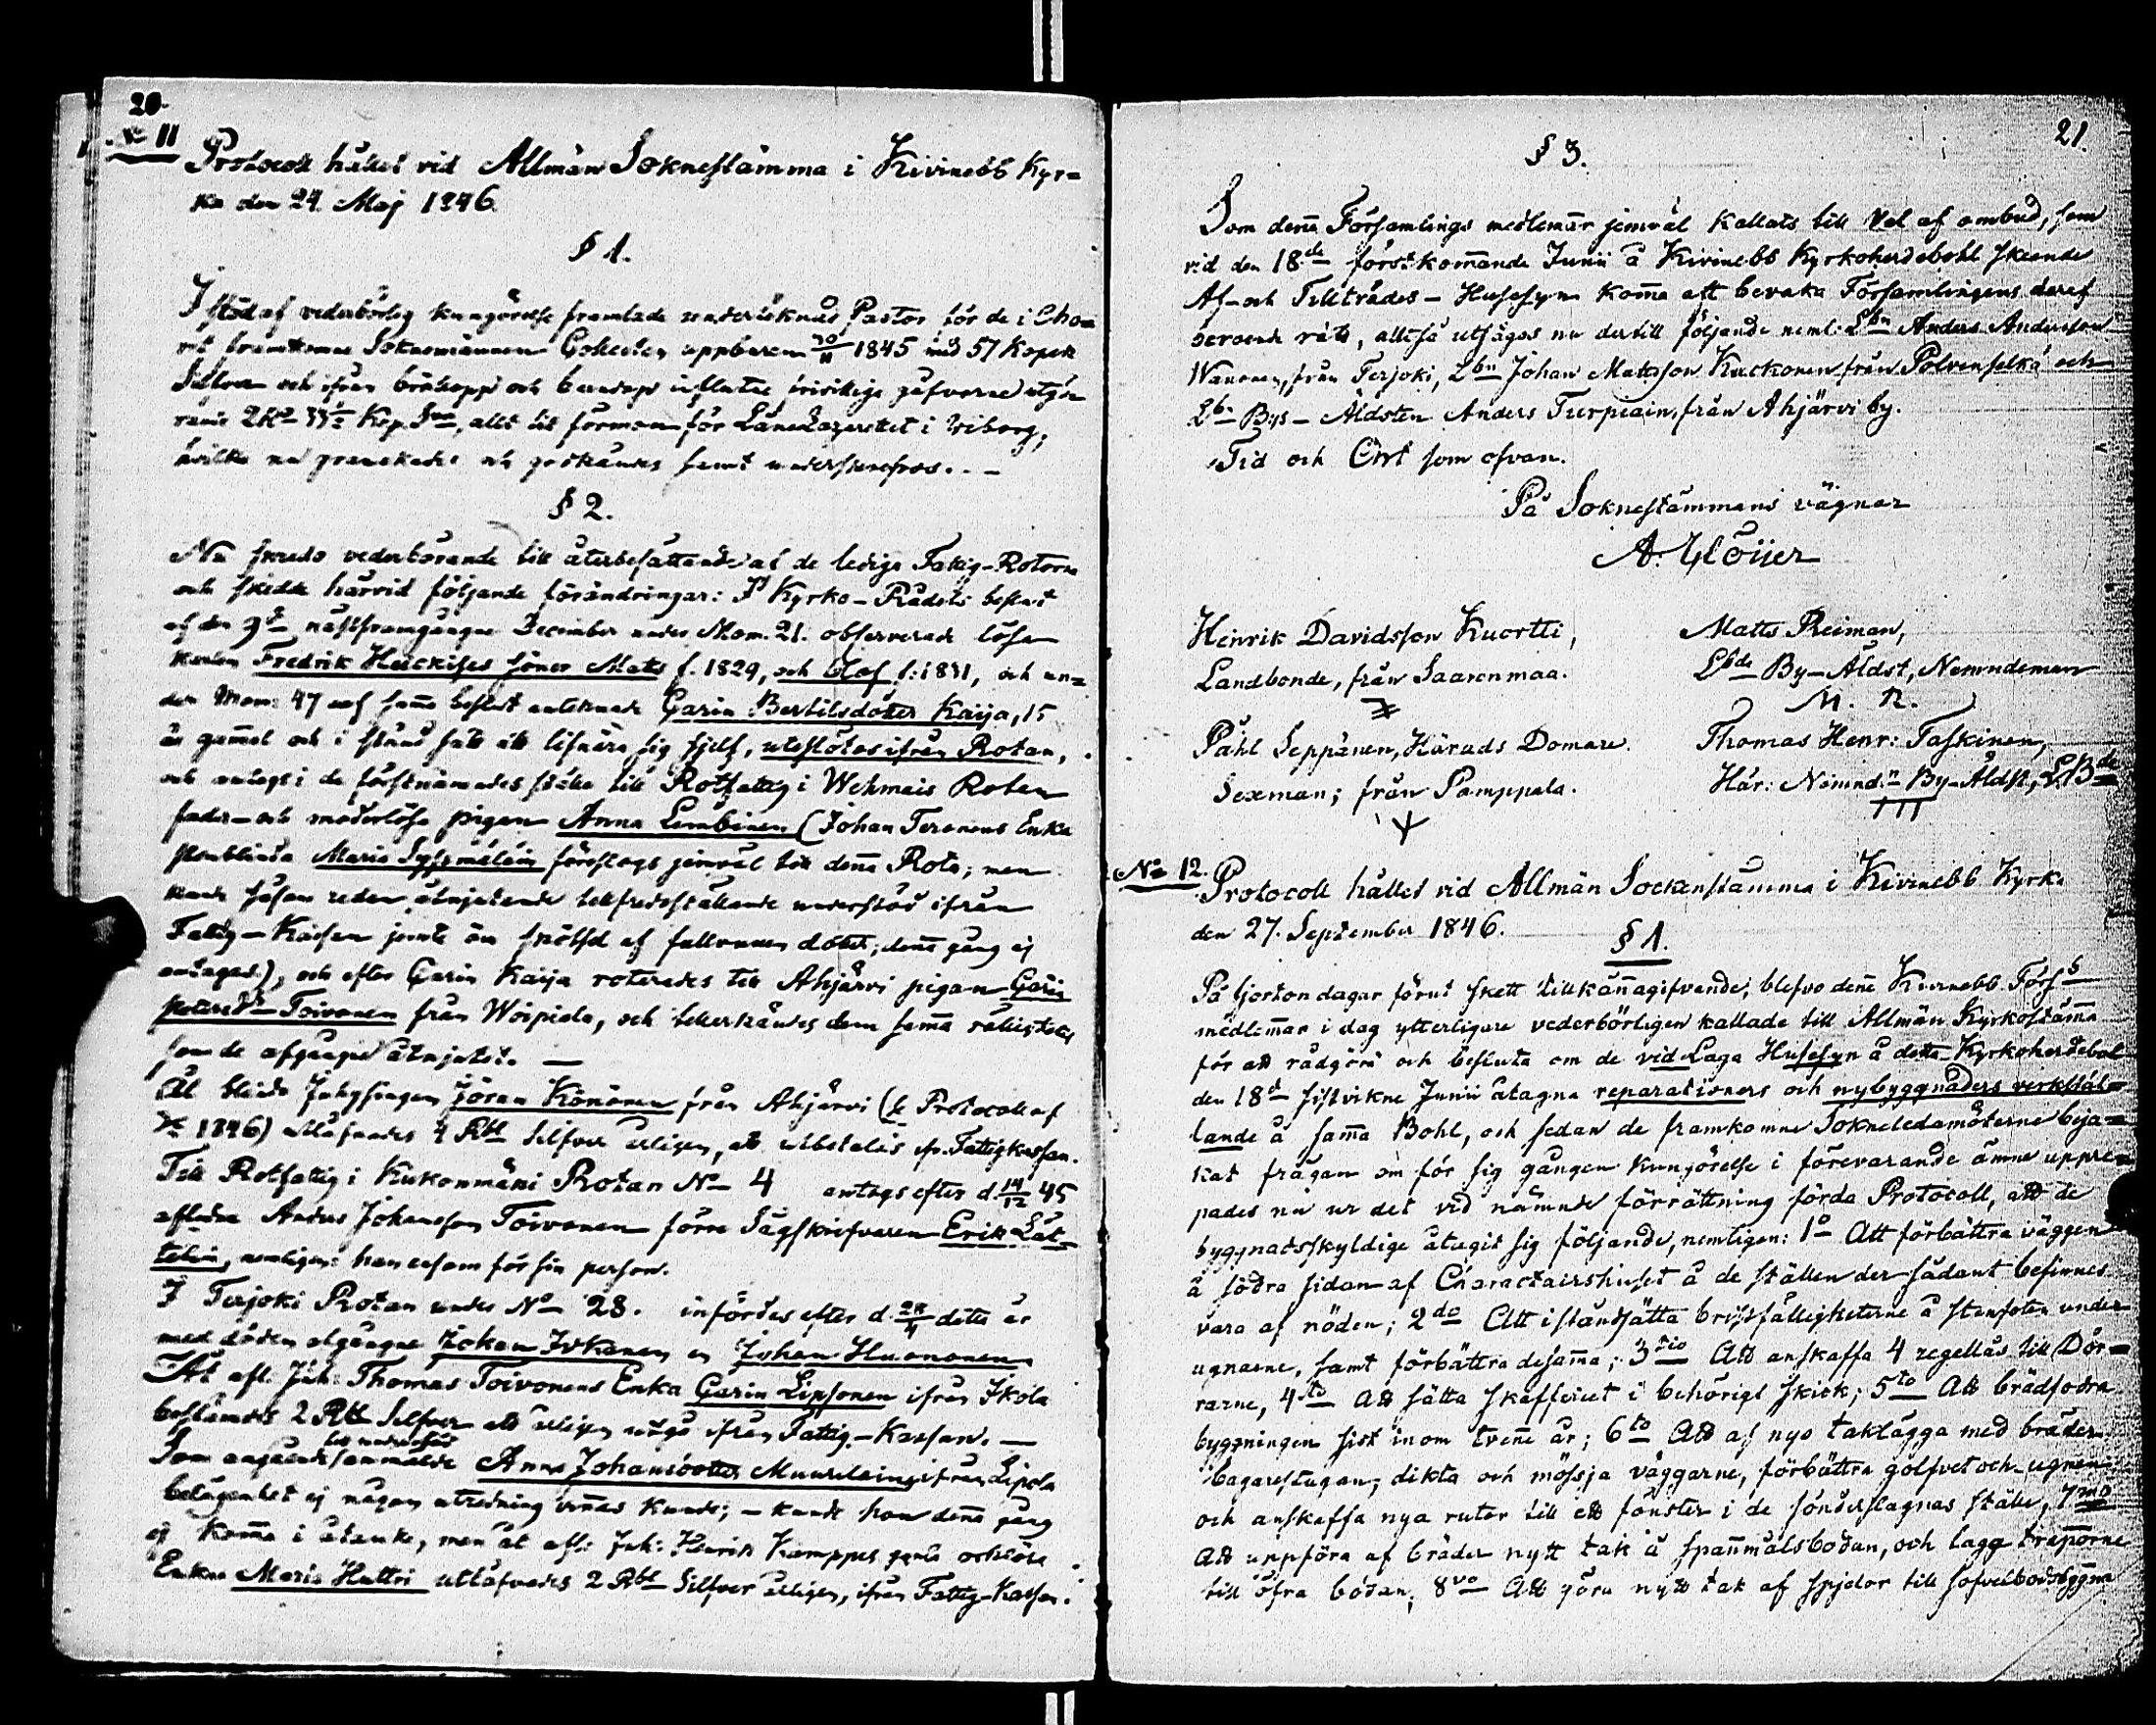 20.
No 11
Protocoll hållet vid Allmän Soknestämma i Kivinebb Kyr=
ka den 24. Maj 1846.
§ 1.
I stöd af vederbörlig kungörelse framlade undertecknad Pastor för de i Cho=
ret framkomne Soknemännen Collecten uppburen 30/11 1845 med 57 Kopek
Silfver och ifrån bröllopp och barndop influtne frivillige gåfvorne utgö=
rande 33½ Kop. allt till förmon för Läns Lazerettet i Wiborg,
hvilka nu granskades och godkändes samt underskrefvos. -
§ 2.
Nu skreds vederbörande till återbesättande af de ledige Fattig-Rotorne
och skedde härvid följande förändringar: Kyrko-Rådets beslut
af den 9de nästframgångne December under Mom. 21. observerade lösa
karlen Fredrik Huckises söner Mats f. 1829, och Olof f. 1831, och un=
der Mom: 47 samma beslut antecknade Carin Bertilsdotter Kaija, 15
år gammel och i stånd satt att lifnära sig sjelf, uteslötos ifrån Rotan,
och antogs i de förstnämndes ställe till Rotfattig i Wehmais Rotan
fader- och moderlösa pigan Anna Lembinen (Johan Teronens Enka
stenblinda Maria föreslogs jemväl till denna Rota; men
kunde såsom redan åtnjutande tillfredsställande understöd ifrån
Fattig-Kassan jemte om skötsel af fullvuxen dotter, denna gång ej
antagas), och efter Carin Kaija roterades till Ahjärvi pigan Carin
Toivonen från Woipiala, och tillerkändes dem samma rättigheter
som de afgångne åtnjutit. —
Åt blinde Inhysingen Jöran Könönen från Ahjärvi (se Protocoll af
1846) utlåfvades 4 Rbl Silfver årligen, att utbetalas ifr. Fattigkassan.
Till Rotfattig i Kukonmäki Rotan No 4 antogs efter d. 14/12 45
aflidne Anders Johansson Toivonen förre Sågskrifvaren Erik Lät=
telin, nemligen: han ensam för sin person.
I Terjoki Rotan under No 28. infördes efter d. detta år
med döden afgångne Johan Ivkanen en Johan Huononen
Åt afl. Inh: Thomas Toivonens Enka Carin Lipsonen ifrån Ikola
bestämdes 2 Rbl Silfver att årligen utgå ifrån Fattig-Kassan. —
Som angående anmälde Anna Johansdotter ifrån Lipola
belägenhet ej någon utredning vinnas kunde; - kunde hon denna gång
ej komma i åtanke, men åt afl: Inh: Henrik Kamppes gamla orkeslösa
Enka Maria Huttri utlåfvades 2 Rbl Silfver årligen, ifrån Fattig-Kassan.
21.
§ 3.
Som denna Församlings medlemmar jemväl kallats till Val af ombud, som
vid den 18de förstkommande Junii å Kivinebb Kyrkoherdebohl skeende
Af- och Tillträdes-Husesyn komma att bevaka Församlingens deraf
beroende rätt, alltså utsågos nu dertill följande neml: Lbn Anders Andersson
Wanonen, från Terjoki, Lbn Johan Mattsson Kuckonen från Polvenselkä och
Lbn Bys-Äldsten Anders Turpiain, från Ahjärvi by.
Tid och Ort som ofvan.
På Soknestämmans vägnar
A. Höijer
Henrik Davidsson Kuortti,
Landbonde, från Saarenmaa.
Matts Reiman,
Lbde By-Äldst, Nemndeman
M. R.
Påhl Seppänen, Härads Domare.
Sexman; från Pamppala.
Thomas Henr: Taskinen,
Här: Nämnd.n By-Äldst, LBde
No 12.
Protocoll hållet vid Allmän Sockenstämma i Kivinebb Kyrk.
den 27. September 1846.
§ 1.
På fjorton dagar förut skett tillkännagifvande, blefvo denna Kivinebb Förs:s
medlemmar i dag ytterligare vederbörligen kallade till Allmän Kyrkostämma
för att rådgöra och besluta om de vid Laga Husesyn å detta Kyrkoherdebol
den 18de sistvikne Junii åtagna reparationers och nybyggnaders verkstäl=
lande å samma Bohl, och sedan de framkomne Sokneledamöterne beja=
kat frågan om för sig gången kungörelse i förevarande ämne uppre=
pades nu ur det vid nämnde förrättning förda Protocoll, att de
byggnadsskyldige åtagit sig följande, nemligen: 1o Att förbättra väggen
å södra sidan af Charactairshuset å de ställen der sådant befinnes
vara af nöden; 2do Att iståndsätta bristfälligheterne å stenfoten under
ugnarne, samt förbättra desamma; 3tio Att anskaffa 4 regellås till Dör=
rarne, 4to Att sätta Skafferiet i behörigt skick; 5to Att brädfodra
byggningen sist inom tvenne år; 6to Att af nyo taklägga med bräder
bagarestugan, dikta och måssja väggarne, förbättra golfvet och ugnen
och anskaffa nya rutor till ett fönster i de sönderslagnas ställe, 7mo
Att uppföra af bräder nytt tak å spannmålsbodan, och lagga trapporne
till öfra bodan, 8vo Att göra nytt tak af spjelor till